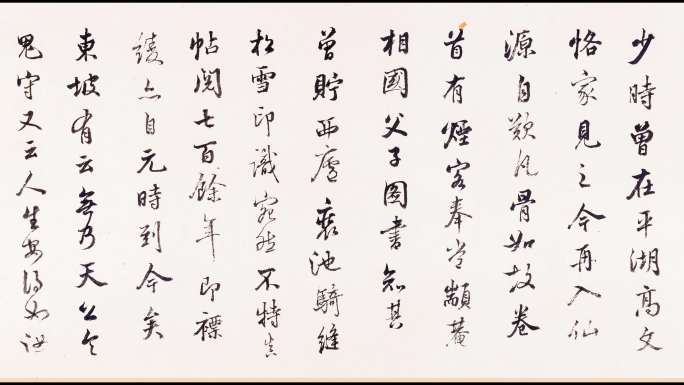 少時曾在平湖高文
恪家見之今再入仙
源自歎凡骨如故卷
首有煙客奉常顓菴
相國父子圖書知其
曾貯西廬裹池騎縫
松雪印識宛然不特真
帖閱七百餘年即褾
綾亦自元時到今矣
東坡有云無乃天公令
鬼守又云人生安得如